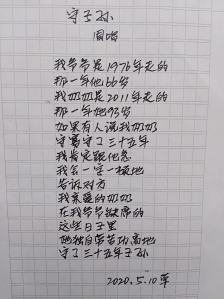 守子孙
周鸣
我爷爷是1976年走的
那一年他66岁
我奶奶是2011年走的
那一年她93岁
如果有人说我奶奶
守寡守了三十五年
我肯定跟他急
我会一字一顿地
告诉对方
我亲爱的奶奶
在我爷爷缺席的
这些日子里
她独自劳苦功高地
守了三十五年子孙
2020.5.10草